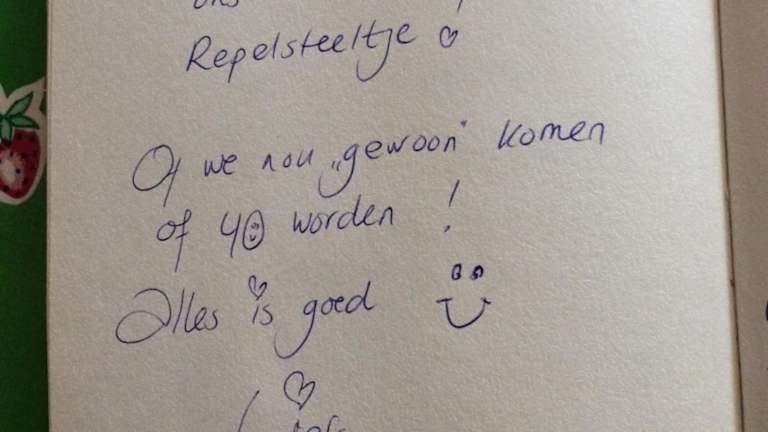 ons
Repelsteeltje
Of we nou „gewoon” komen
of 40 worden !
Alles is goed